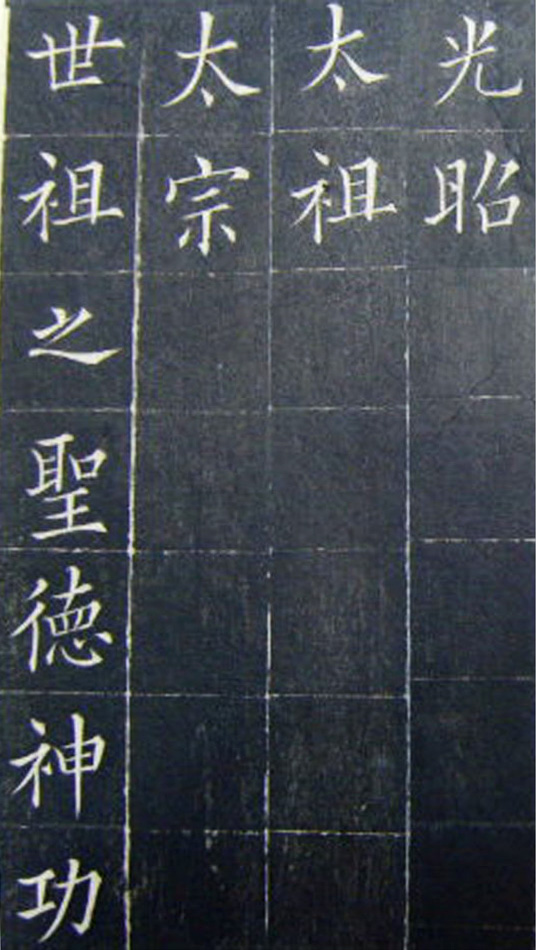 光昭
太祖
太宗
世祖之聖德神功